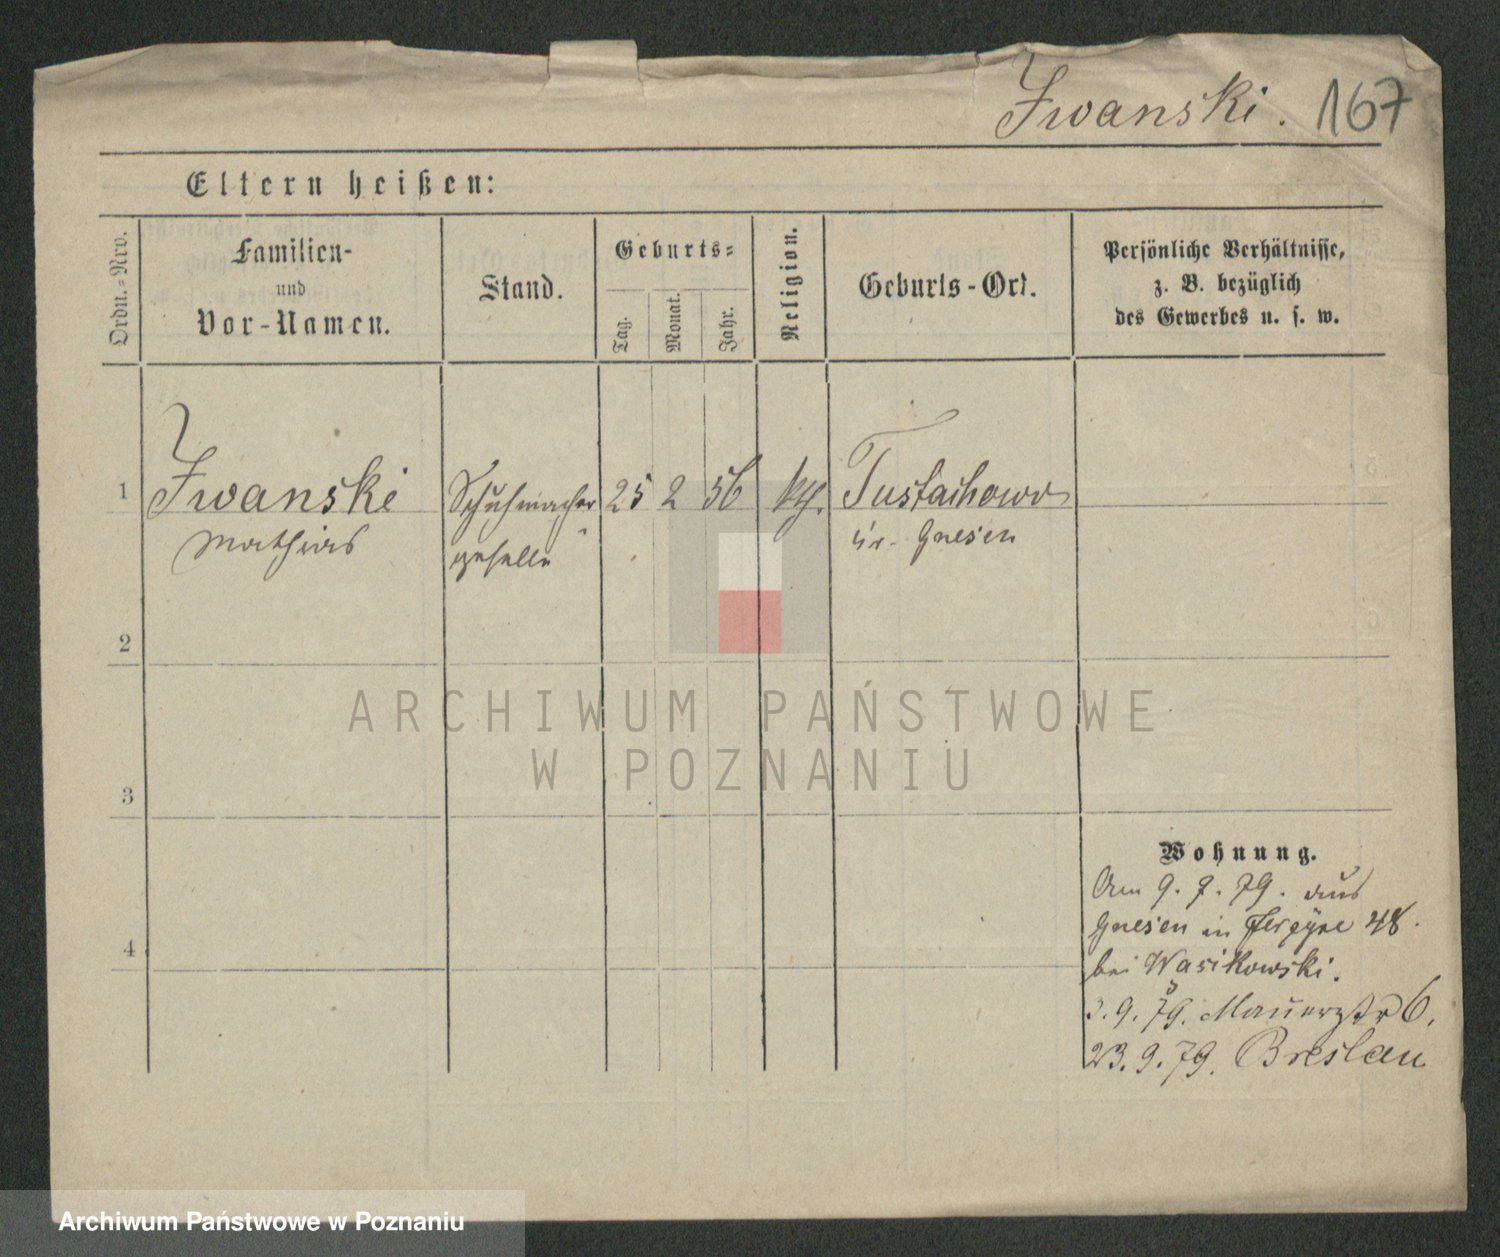 Iwanski. 167
Eltern heißen:
Ordn.-Nro.
Familien-
und
Vor-Namen.
Stand.
Geburts-
Tag.
Monat.
Jahr.
Religion.
Geburts-Ort.
Persönliche Verhältnisse,
z. B. bezüglich
des Gewerbes u. s. w.
1 Iwanski Schuhmacher 25 2 56 kth. Tustaihowo
Mathias geselle Kr. Gnesen
2
3
4
Wohnung.
Am 9. 7. 79. aus
Gnesen in 48.
bei Wasikowski.
3. 9. 79. Mauerstr 6.
23. 9. 79. Breslau
ARCHIWUM PAŃSTWOWE
W POZNANIU
Archiwum Państwowe w Poznaniu